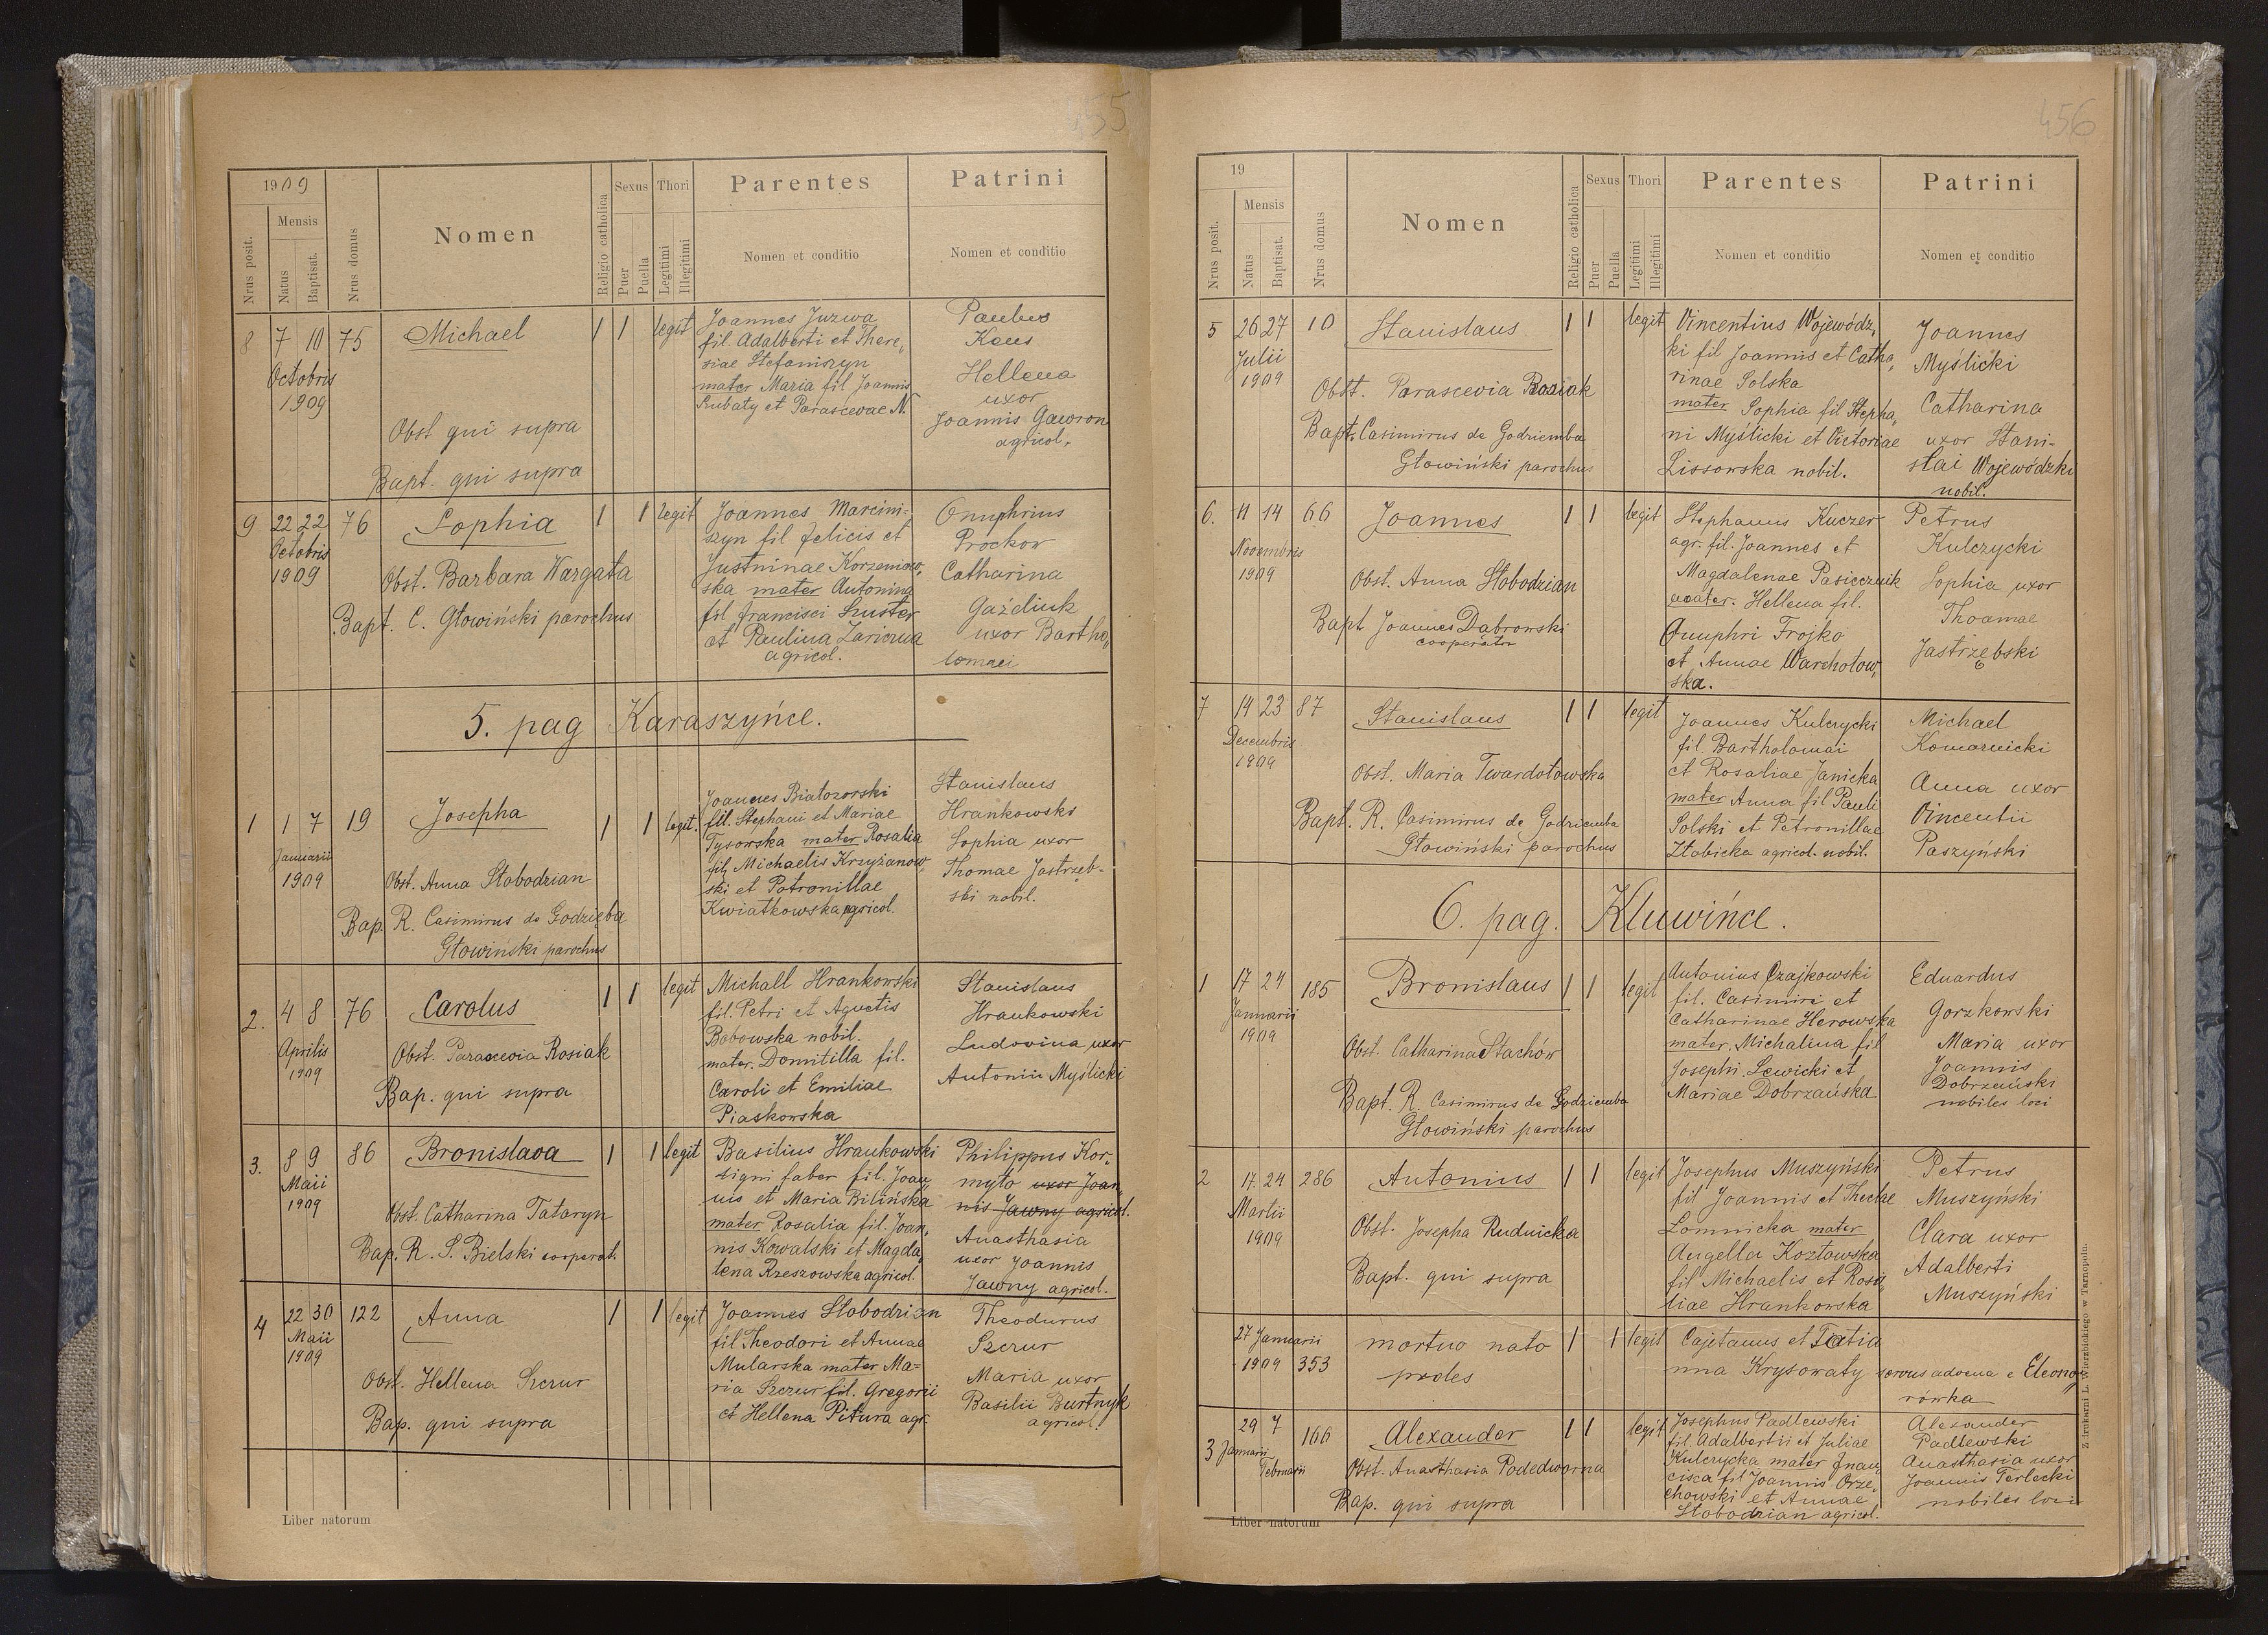 455
1909
Nrus posit.
Mensis
Natus
Baptisat.
Nrus domus
Nomen
Religio catholica
Sexus
Puer
Puella
Thori
Legitimi
Illegitimi
Parentes
Nomen et conditio
Patrini
Nomen et conditio
8 7 10 75 Michael 1 1 legit
Octobris
1909
Obst qui supra
Bapt. qui supra
Joannes Juzwa
fil. Adalberti et There„
siae Stefaniszyn
mater Maria fil Joannis
Szubaty et Parascevae N.
Paulus
Kous
Hellena
uxor
Joannis Gawron
agricol.
9 22 22 76 Sophia 1 1 legit
Octobris
1909
Obst. Barbara Wargata
Bapt. C. Głowiński parochus
Joannes Marcini-
szyn fil felicis et
Justninae Korzeniow„
ska mater Antonina
fil francisci Szuster
et Paulina Zariczna
agricol.
Onuphrius
Prockow
Catharina
Gaździuk
uxor Bartho„
lomaei
5. pag Karaszyńce.
1 1 7 19 Josepha 1 1 legit.
Januarii
1909
Obst. Anna Słobodzian
Bap. R. Casimirus de Godzięba
Głowiński parochus
Joannes Białozorski
fil. Stephani et Mariae
Tysowska mater Rosalia
fil. Michaelis Krzyżanow„
ski et Petronillae
Kwiatkowska agricol.
Stanislaus
Hrankowski
Sophia uxor
Thomae Jastrzęb-
ski nobil.
2. 4 8 76 Carolus 1 1 legit
Aprilis
1909
Obst. Parascevia Rosiak
Bap. qui supra
Michall Hrankowski
fil. Petri et Agnetis
Bobowska nobil.
mater. Domitilla fil.
Caroli et Emiliae
Piaskowska
Stanislaus
Hrankowski
Ludovina uxor
Antonii Myślicki
3. 8 9 86 Bronislava 1 1 legit
Maii
1909
Obst. Catharina Tataryn
Bap. R. S. Bielski cooperat.
Basilius Hrankowski
ligni faber fil. Joan„
nis et Maria Bilińska
mater Rosalia fil. Joan„
nis Kowalski et Magda„
lena Rzeszowska agricol.
Philippus Kor„
myło uxor Joan„
nis Jawny agricol.
Anasthasia
uxor Joannis
Jawny agricol.
4 22 30 122 Anna 1 1 legit
Maii
1909
Obst. Hellena Szczur
Bap. qui supra
Joannes Słobodzian
fil Theodori et Annae
Mularska mater Ma=
ria Szczur fil. Gregorii
et Hellena Pitura agr.
Theodurus
Szczur
Maria uxor
Basilii Burtnyk
agricol.
Liber natorum
456
19
Nrus posit.
Mensis
Natus
Baptisat.
Nrus domus
Nomen
Religio catholica
Sexus
Puer
Puella
Thori
Legitimi
Illegitimi
Parentes
Nomen et conditio
Patrini
Nomen et conditio
5 26 27 10 Stanislaus 1 1 legit
Julii
1909
Obst. Parascevia Rosiak
Bapt. Casimirus de Godziemba
Głowiński parochus
Vincentius Wojewódz„
ki fil Joannis et Catha„
rinae Solska
mater Sophia fil Stepha„
ni Myślicki et Victoriae
Lissowska nobil.
Joannes
Myślicki
Catharina
uxor Stani-
slai Wojewódzki
nobil.
6. 11 14 66 Joannes 1 1 legit
Novembris
1909
Obst. Anna Słobodzian
Bapt Joannes Dąbrowski
cooperator
Stephanus Kuczer
agr. fil. Joannes et
Magdalenae Pasiecznik
mater. Hellena fil.
Onuphri Trojko
et Annae Warchołow„
ska.
Petrus
Kulczycki
Sophia uxor
Thoamae
Jastrzębski
7 14 23 87 Stanislaus 1 1 legit
Decembris
1909
Obst. Maria Twardołowska
Bapt. R. Casimirus de Godziemba
Głowiński parochus
Joannes Kulczycki
fil. Bartholomai
et Rosaliae Janicka
mater Anna fil Pauli
Solski et Petronillae
Złobicka agricol. nobil.
Michael
Komarnicki
Anna uxor
Vincentii
Paszyński
6. pag. Kluwińce.
1 17 24 185 Bronislaus 1 1 legit
Januarii
1909
Obst. Catharina Stachów
Bapt. R. Casimirus de Godziemba
Głowiński parochus
Antonius Czajkowski
fil. Casimiri et
Catharinae Herowska
mater. Michalina fil
Josephi Lewicki et
Mariae Dobrzańska
Eduardus
Gorzkowski
Maria uxor
Joannis
Dobrzański
nobiles loci
2 17. 24 286 Antonius 1 1 legit
Martii
1909
Obst. Josepha Rudnicka
Bapt. qui supra
Josephus Muszyński
fil Joannis et Theclae
Łomnicka mater
Angella Kozłowska
fil Michaelis et Rosa„
liae Hrankowska
Petrus
Muszyński
Clara uxor
Adalberti
Muszyński
27 Januarii
1909 353 mortuo nato 1 1 legit
prodes
Cajetanus et Tatia
nna Krysowaty servus advena e Eleono„
rówka
3 29 7 166 Alexander 1 1 legit
Januarii
Februarii
Obst. Anasthasia Podedworna
Bap. qui supra
Josephus Padlewski
fil. Adalbertii et Juliae
Kulczycka mater fran„
cisca fil Joannis Orze„
chowski et Annae
Słobodzian agricol.
Alexander
Padlewski
Anasthasia uxor
Joannis Terlecki
nobiles loci
Liber natorum
Z drukarni L. Wierzbickiego w Tarnopolu.